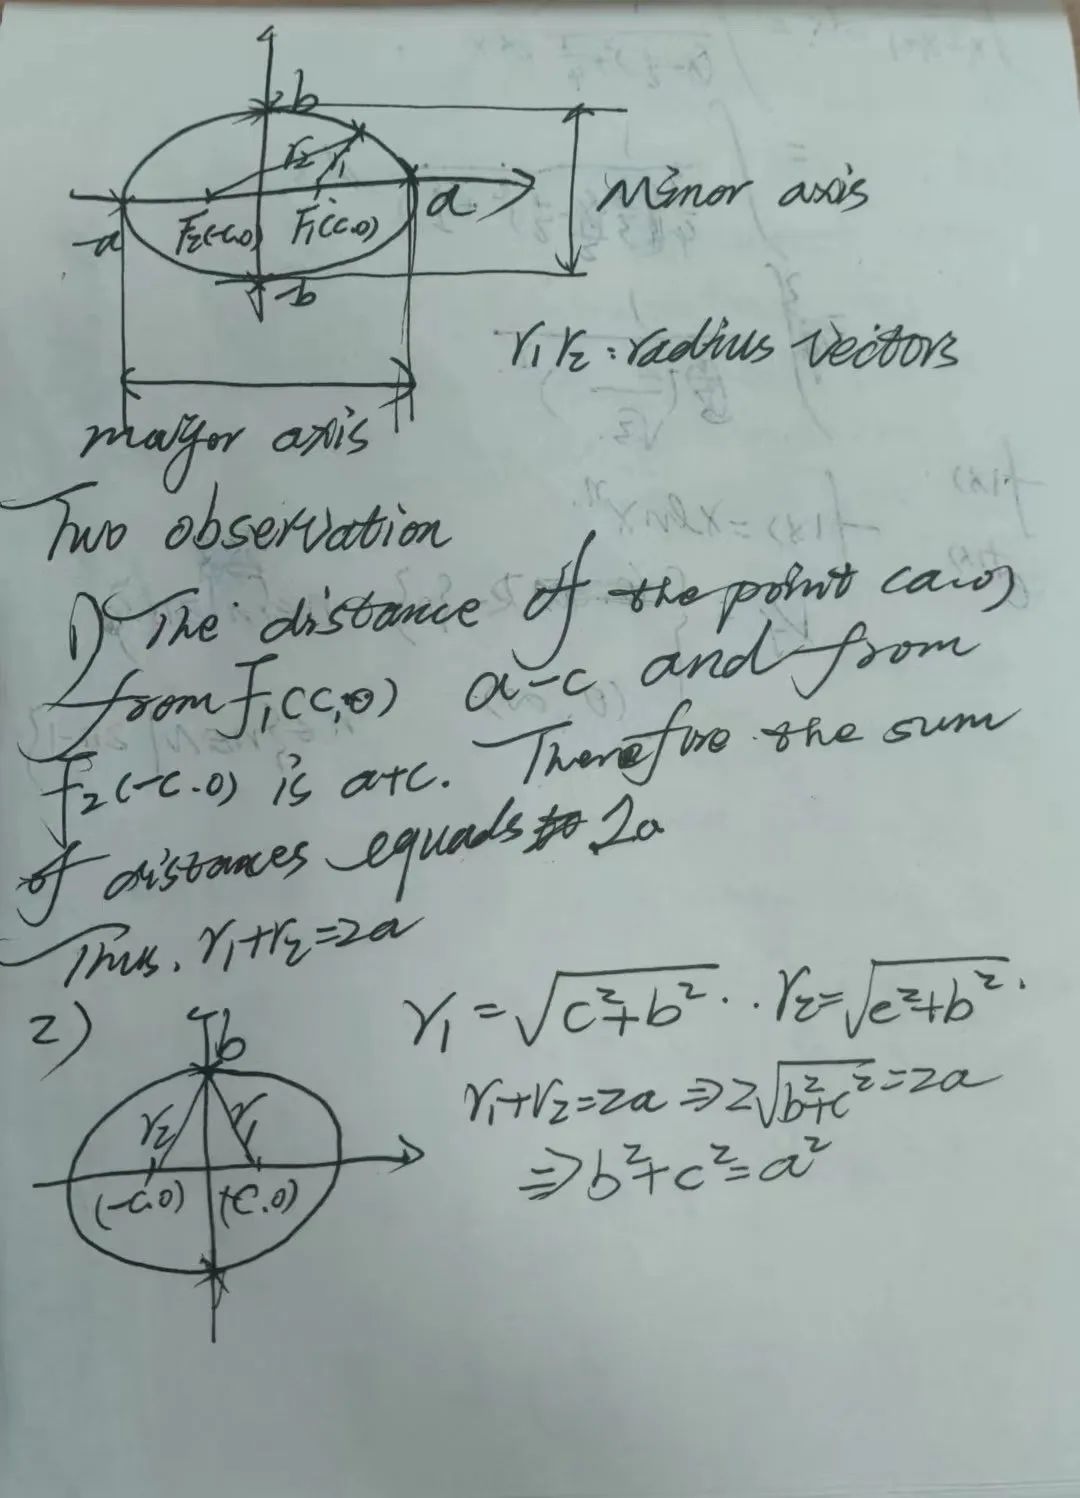 b
r2 r1
-a F2(-c,0) F1(c,0) a
-b
Minor axis
r1 r2 : radius vectors
mayor axis
Two observation
1) The distance of the point (a,0)
from F1(c,0) a-c and from
F2(-c.0) is a+c. Therefore the sum
of distances equads to 2a
Thus, r1+r2=2a
2)
b
r2 r1
(-c.0) (c.0)
r1 = √(c²+b²) .. r2=√(c²+b²).
r1+r2=2a ⇒ 2√(b²+c²)=2a
⇒ b²+c²=a²